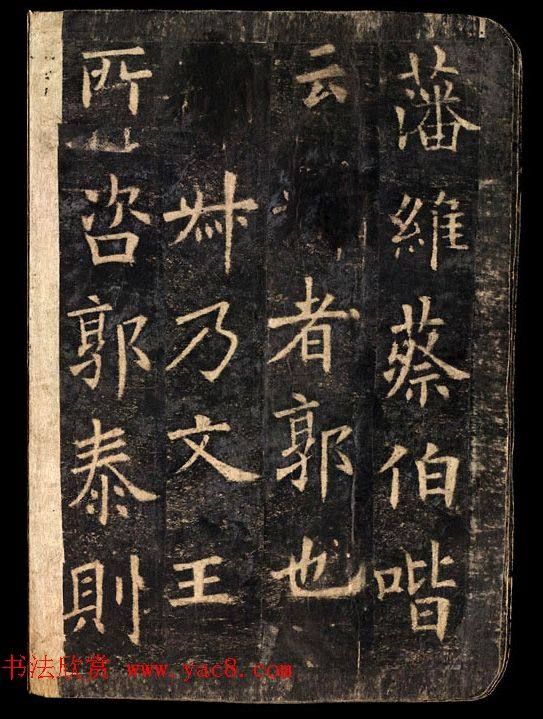 藩維蔡伯喈
云者郭也
叔乃文王
所咨郭泰則
书法欣赏 www.yac8.com